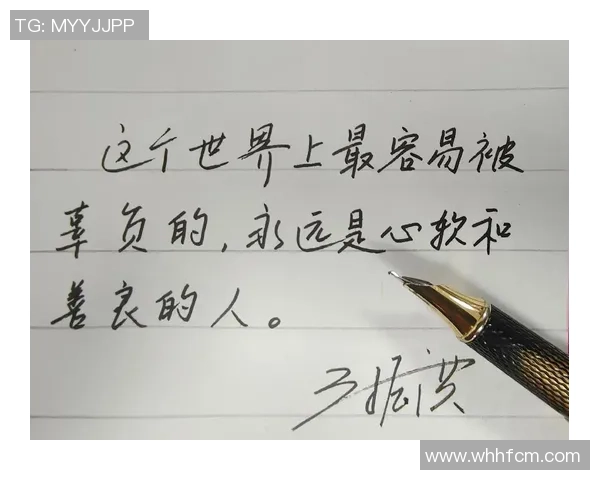 TG: MYYJJPP
这个世界上最容易被
辜负的，永远是心软和
善良的人。
www.whhfcm.com